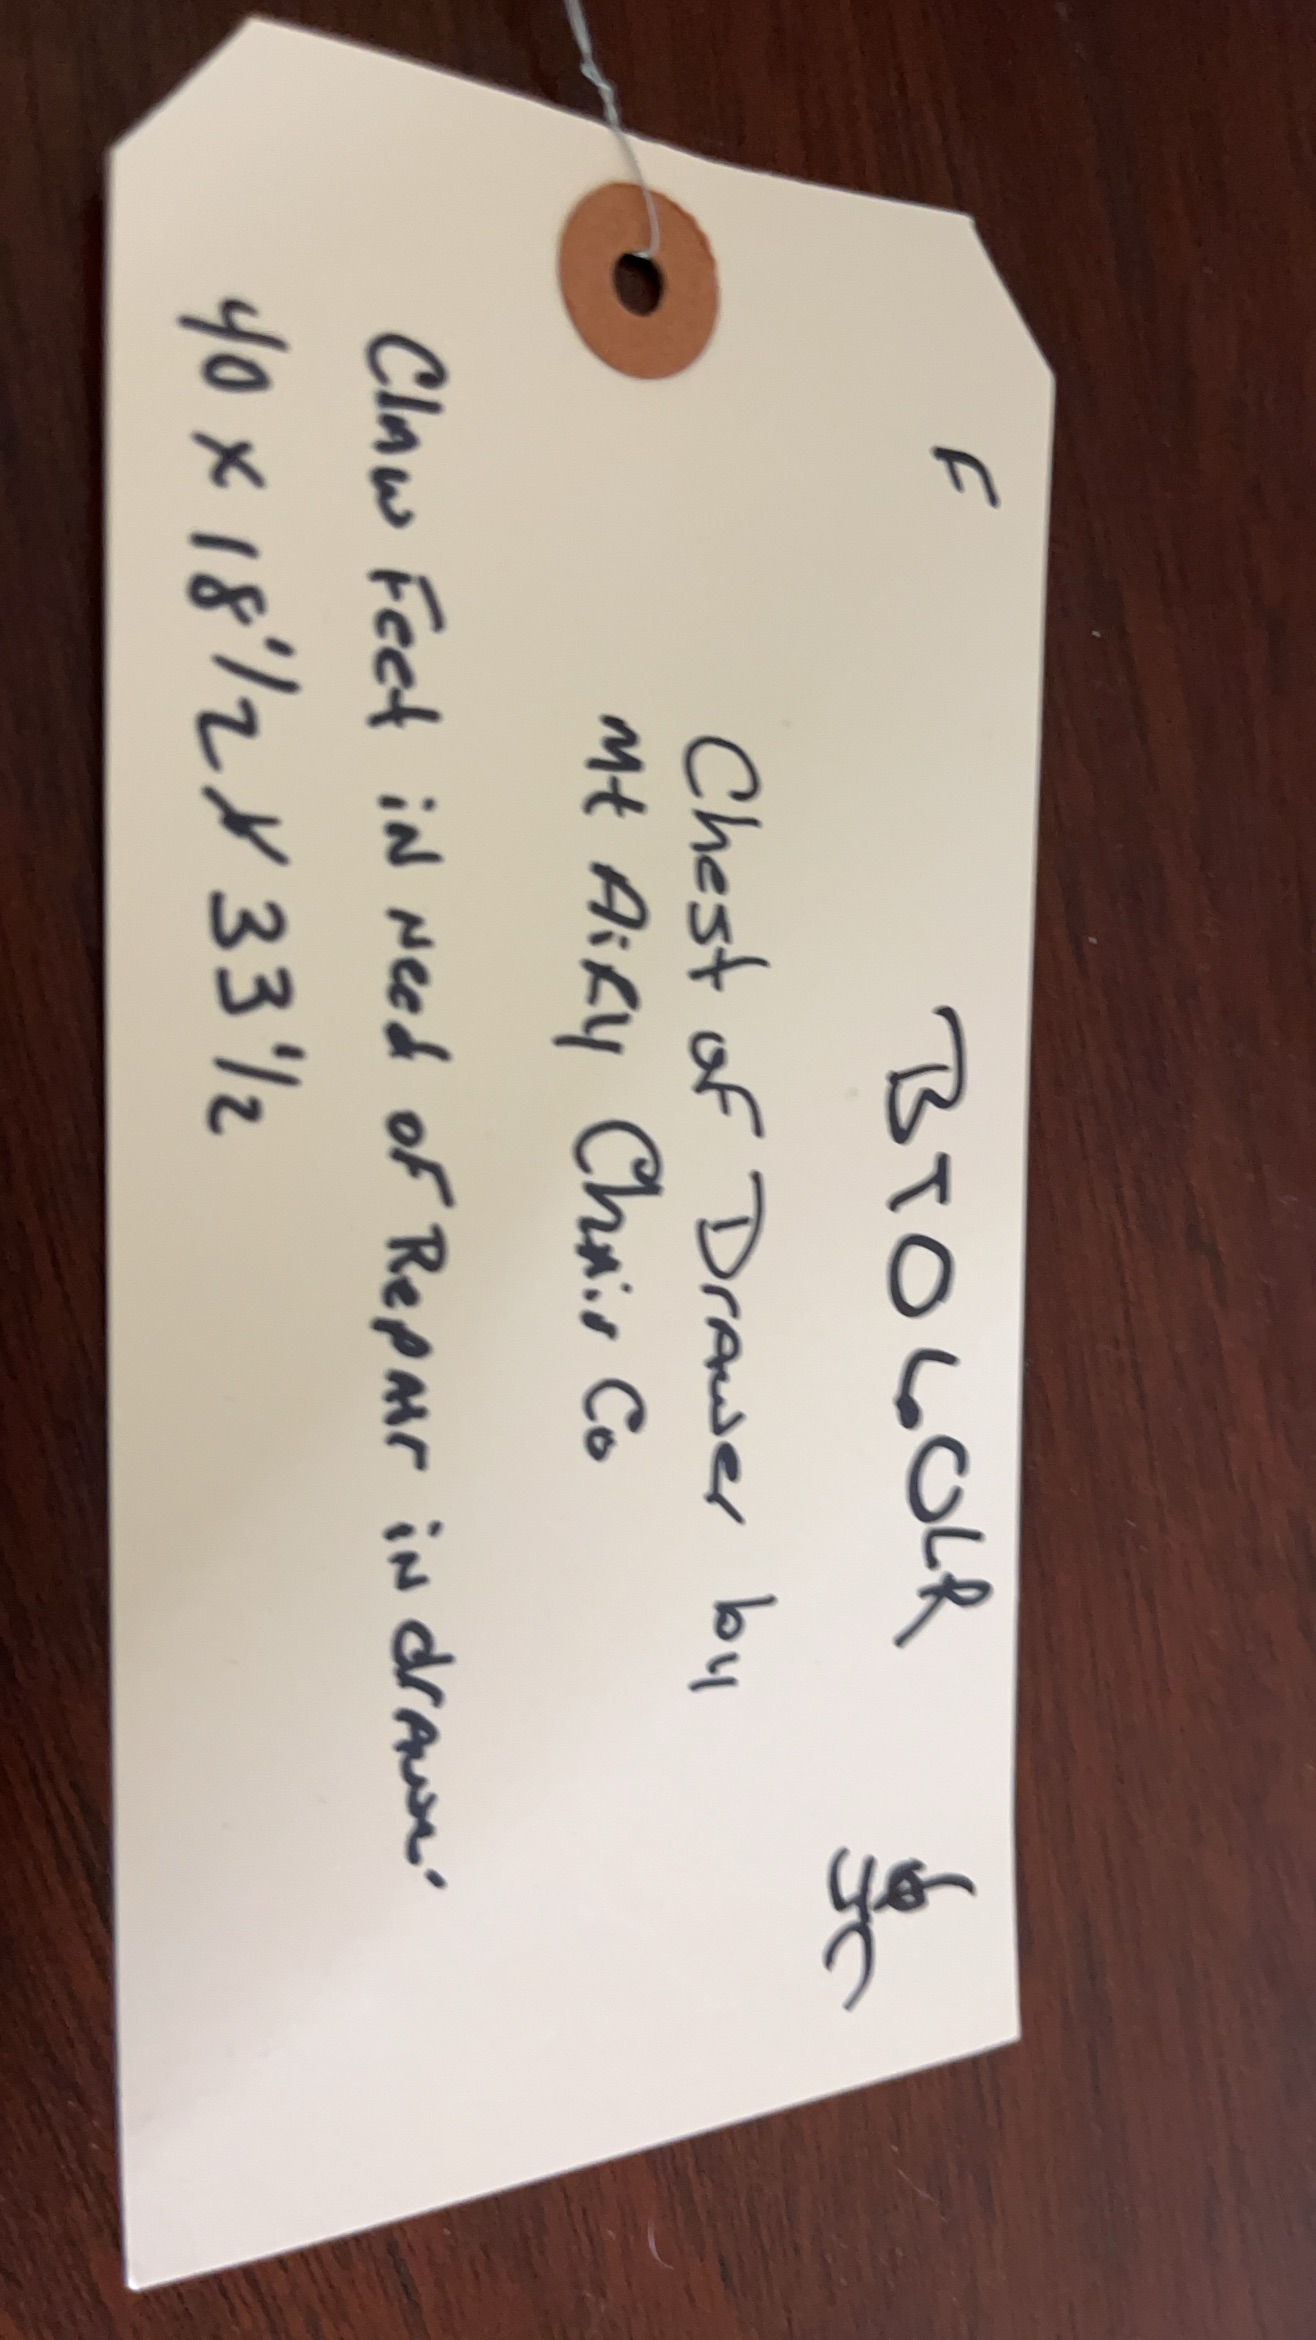 F BTOLCLR JC
Chest of Drawer by
Mt Airy Chair Co
Claw Feet in Need of Repair in drawer.
40 x 18 1/2 x 33 1/2